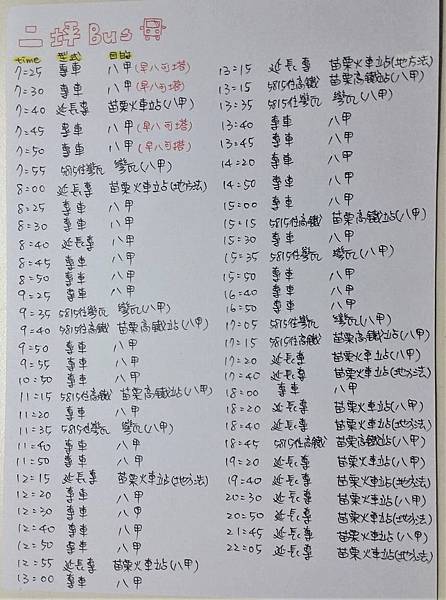 二坪 Bus
time 型式 目的
7:25 專車 八甲(早八可搭)
7:30 專車 八甲(早八可搭)
7:40 延長專 苗栗火車站(八甲)
7:45 專車 八甲(早八可搭)
7:50 專車 八甲(早八可搭)
7:55 5815往彎瓦 彎瓦(八甲)
8:00 延長專 苗栗火車站(地方法)
8:25 專車 八甲
8:30 專車 八甲
8:40 延長專 八甲
8:45 專車 八甲
8:50 專車 八甲
9:25 專車 八甲
9:35 5815往彎瓦 彎瓦(八甲)
9:40 5815往高鐵 苗栗高鐵站(八甲)
9:50 專車 八甲
9:55 專車 八甲
10:50 專車 八甲
11:15 5815往高鐵 苗栗高鐵站(八甲)
11:20 專車 八甲
11:35 5815往彎瓦 彎瓦(八甲)
11:40 專車 八甲
11:50 專車 八甲
12:15 延長專 苗栗火車站(地方法)
12:20 專車 八甲
12:30 專車 八甲
12:40 專車 八甲
12:50 專車 八甲
12:55 延長專 苗栗火車站(八甲)
13:00 專車 八甲
13:15 延長專 苗栗火車站(地方法)
13:15 5815往高鐵 苗栗高鐵站(八甲)
13:35 5815往彎瓦 彎瓦(八甲)
13:40 專車 八甲
13:45 專車 八甲
14:20 專車 八甲
14:50 專車 八甲
15:00 專車 八甲
15:15 5815往高鐵 苗栗高鐵站(八甲)
15:30 專車 八甲
15:35 5815往彎瓦 彎瓦(八甲)
15:50 專車 八甲
16:40 專車 八甲
16:50 專車 八甲
17:05 5815往彎瓦 彎瓦(八甲)
17:15 5815往高鐵 苗栗高鐵站(八甲)
17:20 延長專 苗栗火車站(八甲)
17:40 延長專 苗栗火車站(地方法)
18:00 專車 八甲
18:20 延長專 苗栗火車站(八甲)
18:40 延長專 苗栗火車站(地方法)
18:45 5815往高鐵 苗栗高鐵站(八甲)
19:20 延長專 苗栗火車站(八甲)
19:40 延長專 苗栗火車站(地方法)
20:30 延長專 苗栗火車站(八甲)
20:50 延長專 苗栗火車站(地方法)
21:45 延長專 苗栗火車站(八甲)
22:05 延長專 苗栗火車站(地方法)